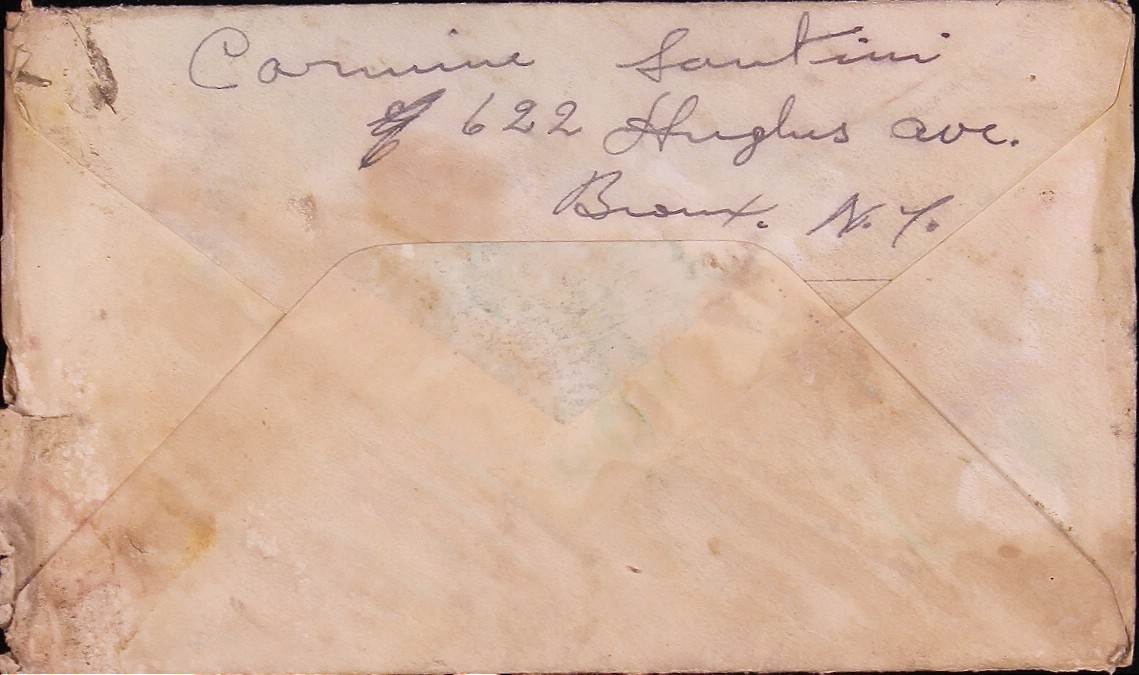 Carmine Santini
622 Hughes ave.
Bronx. N.Y.